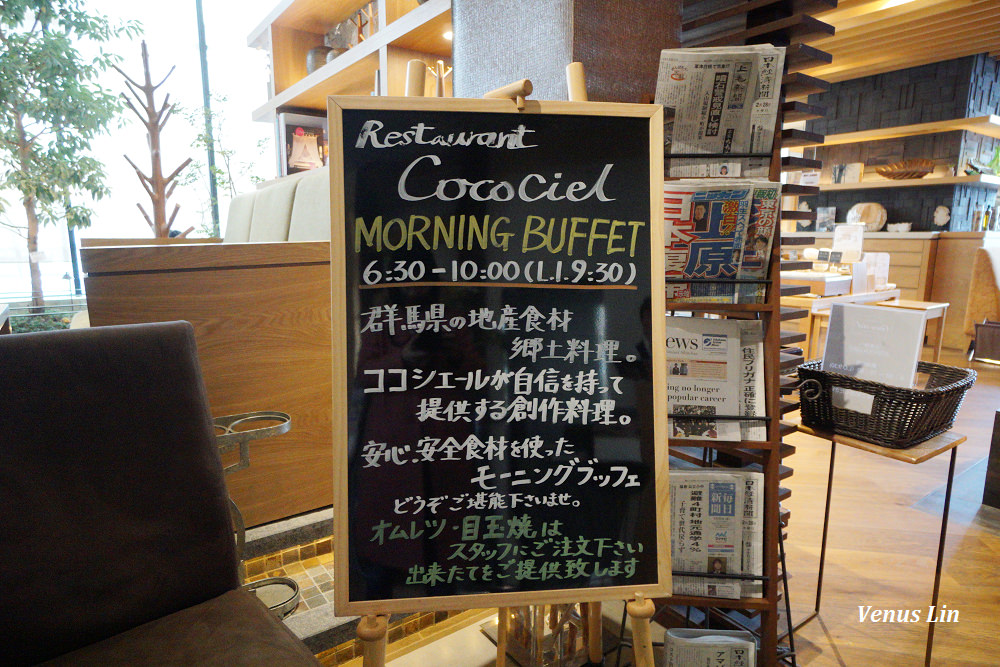 Restaurant
CocoCiel
MORNING BUFFET
6:30-10:00(L.I.9:30)
群馬県の地産食材
郷土料理。
ココシエールが自信を持って
提供する創作料理。
安心、安全食材を使った
モーニングブッフェ
どうぞご堪能下さいませ。
オムレツ・目玉焼は
スタッフにご注文下さい
出来たてをご提供致します
上毛新聞
日本経済新聞
東京の顔
原
news
ing no longer
popular career
住民ブリガナ 正確に登録
毎日新聞
避難4町村 地元通学4%
Venus Lin